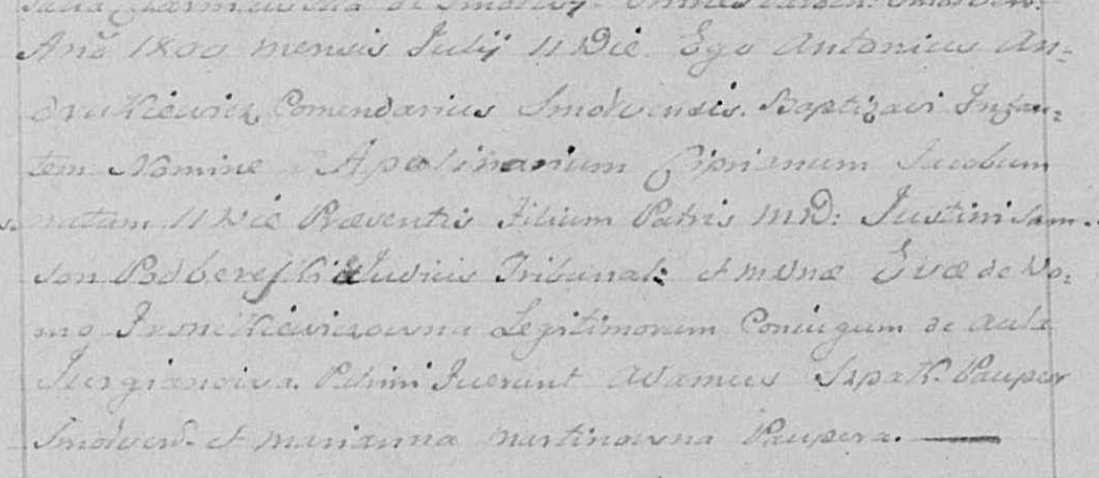 de Smolwy. Omnes
Anõ 1800 mensis Julij 11 Die. Ego Antonius An-
drukiewicz Comendarius Smolvensis. Baptizavi Infan-
tem Nomine Apolinarium Ciprianum Jacobum
natum 11 Die Præsentis Filium Patris MD: Justini Sam-
son Podbereski Judicis Tribunal: et MDnæ Evæ de Do-
mo Troncikiewiczowna Legitimorum Coniugum de Aula
Jurgianciva. Patrini Fuerunt Adamus Szpak. Pauper
Smolven. et Marianna Martinowna Paupera.